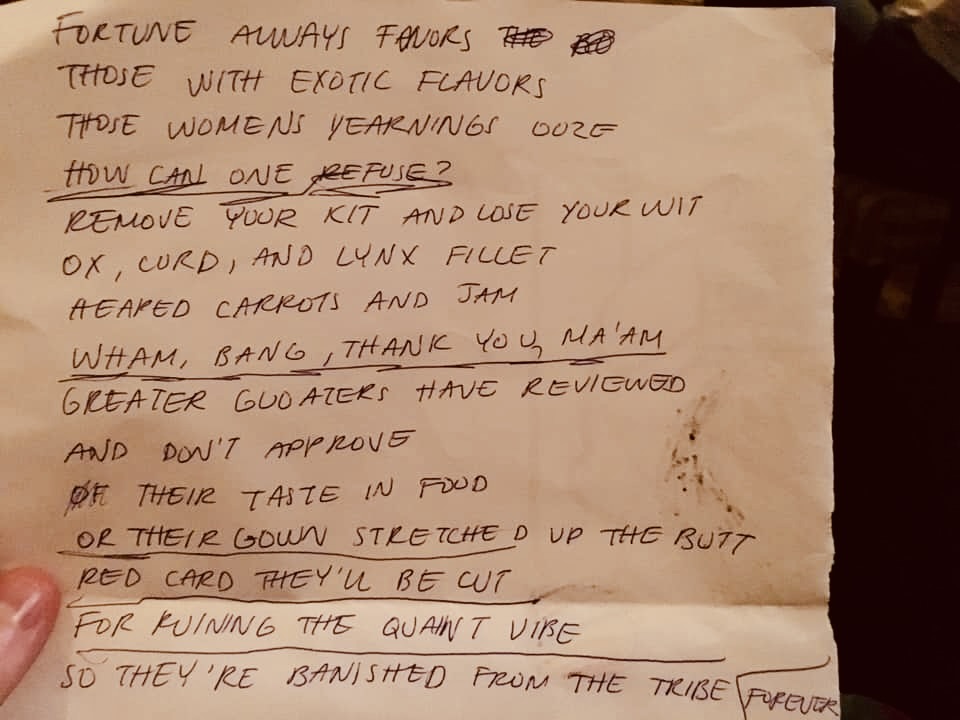 FORTUNE ALWAYS FAVORS THE
THOSE WITH EXOTIC FLAVORS
THOSE WOMENS YEARNINGS OOZE
HOW CAN ONE REFUSE?
REMOVE YOUR KIT AND LOSE YOUR WIT
OX, CURD, AND LYNX FILLET
HEAPED CARROTS AND JAM
WHAM, BANG, THANK YOU, MA'AM
GREATER HAVE REVIEWED
AND DON'T APPROVE
OF THEIR TASTE IN FOOD
OR THEIR GOWN STRETCHED UP THE BUTT
RED CARD THEY'LL BE CUT
FOR RUINING THE QUAINT VIBE
SO THEY'RE BANISHED FROM THE TRIBE FOREVER